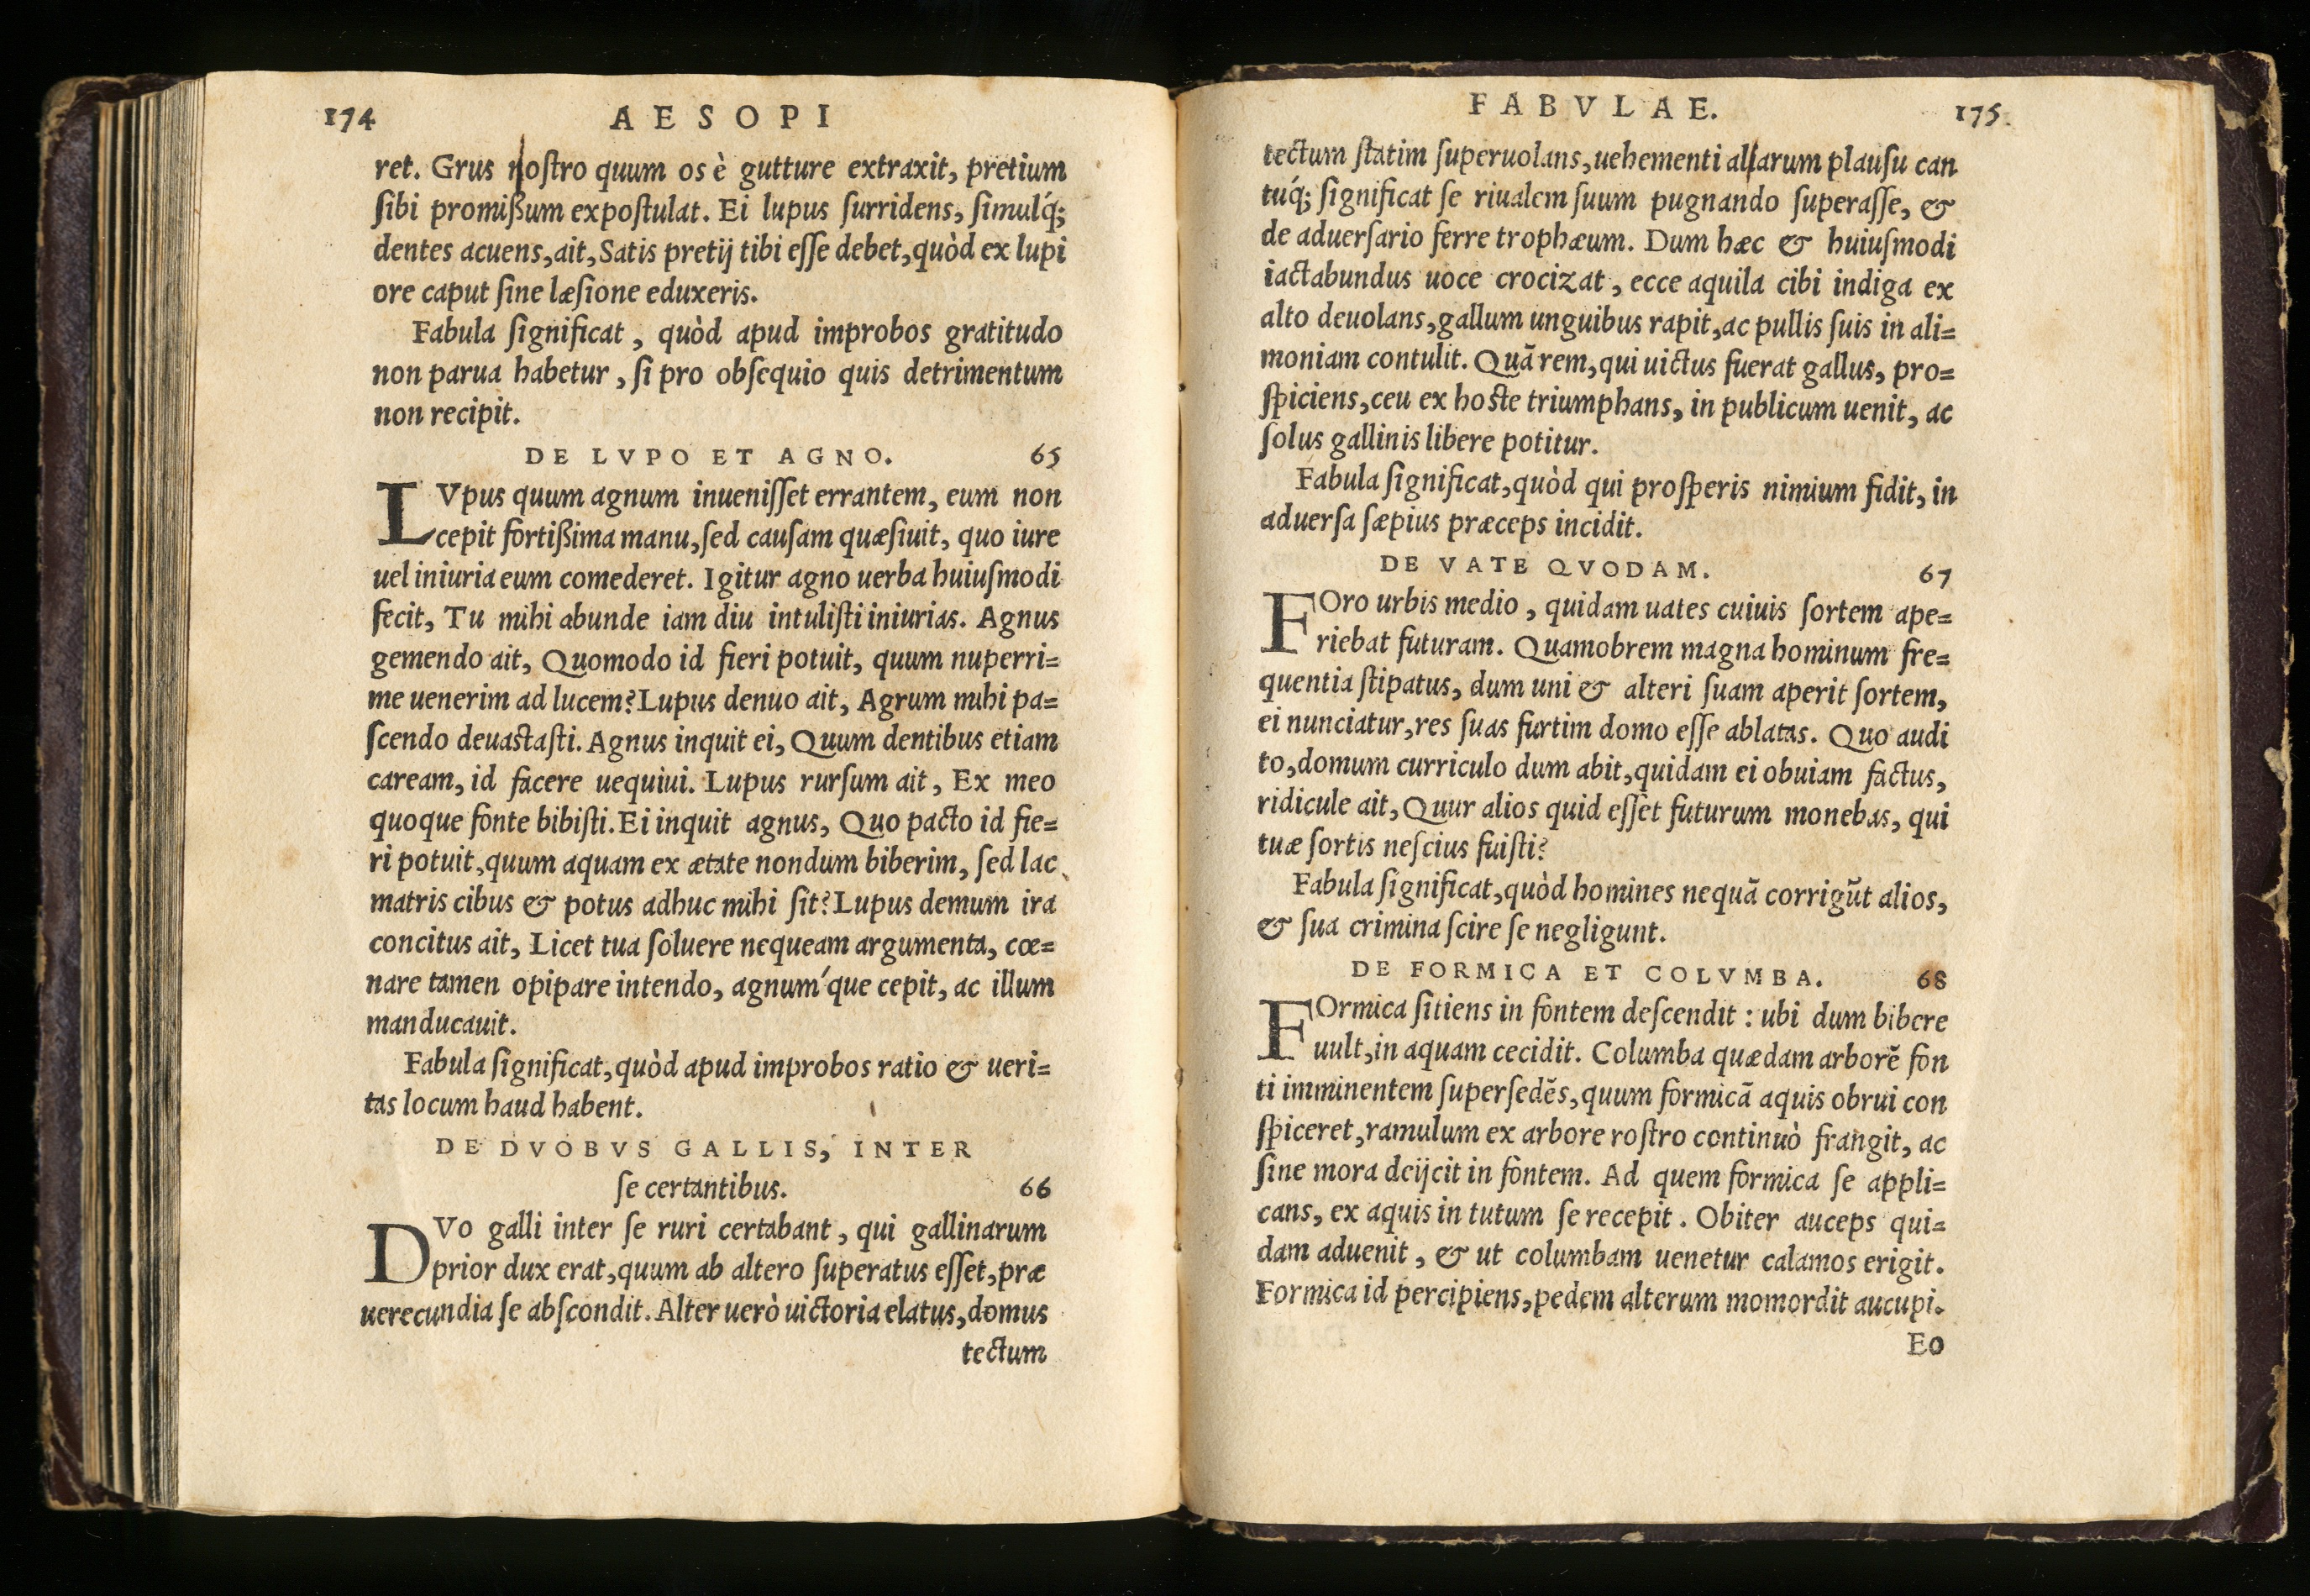 174 AESOPI
ret. Grus noſtro quum os è gutture extraxit, pretium
ſibi promiſſum expoſtulat. Ei lupus ſurridens, ſimulq́;
dentes acuens, ait, Satis pretij tibi eſſe debet, quòd ex lupi
ore caput ſine læſione eduxeris.
Fabula ſignificat, quòd apud improbos gratitudo
non parua habetur, ſi pro obſequio quis detrimentum
non recipit.
DE LVPO ET AGNO. 65
LVpus quum agnum inueniſſet errantem, eum non
cepit fortiſſima manu, ſed cauſam quæſiuit, quo iure
uel iniuria eum comederet. Igitur agno uerba huiuſmodi
fecit, Tu mihi abunde iam diu intuliſti iniurias. Agnus
gemendo ait, Quomodo id fieri potuit, quum nuperri=
me uenerim ad lucem? Lupus denuo ait, Agrum mihi pa=
ſcendo deuaſtaſti. Agnus inquit ei, Quum dentibus etiam
caream, id facere uequiui. Lupus rurſum ait, Ex meo
quoque fonte bibiſti. Ei inquit agnus, Quo pacto id fie=
ri potuit, quum aquam ex ætate nondum biberim, ſed lac
matris cibus & potus adhuc mihi ſit? Lupus demum ira
concitus ait, Licet tua ſoluere nequeam argumenta, cœ=
nare tamen opipare intendo, agnum´que cepit, ac illum
manducauit.
Fabula ſignificat, quòd apud improbos ratio & ueri=
tas locum haud habent.
DE DVOBVS GALLIS, INTER
ſe certantibus. 66
DVo galli inter ſe ruri certabant, qui gallinarum
prior dux erat, quum ab altero ſuperatus eſſet, præ
uerecundia ſe abſcondit. Alter uerò uictoria elatus, domus
tectum
FABVLAE. 175.
tectum ſtatim ſuperuolans, uehementi alſarum plauſu can
tuq́; ſignificat ſe riualem ſuum pugnando ſuperaſſe, &
de aduerſario ferre trophæum. Dum hæc & huiuſmodi
iactabundus uoce crocizat, ecce aquila cibi indiga ex
alto deuolans, gallum unguibus rapit, ac pullis ſuis in ali=
moniam contulit. Quā rem, qui uictus fuerat gallus, pro=
ſpiciens, ceu ex hoſte triumphans, in publicum uenit, ac
ſolus gallinis libere potitur.
Fabula ſignificat, quòd qui proſperis nimium fidit, in
aduerſa ſæpius præceps incidit.
DE VATE QVODAM. 67
FOro urbis medio, quidam uates cuiuis ſortem ape=
riebat futuram. Quamobrem magna hominum fre=
quentia ſtipatus, dum uni & alteri ſuam aperit ſortem,
ei nunciatur, res ſuas furtim domo eſſe ablatas. Quo audi
to, domum curriculo dum abit, quidam ei obuiam factus,
ridicule ait, Quur alios quid eſſet futurum monebas, qui
tuæ ſortis neſcius fuiſti?
Fabula ſignificat, quòd homines nequā corrigūt alios,
& ſua crimina ſcire ſe negligunt.
DE FORMICA ET COLVMBA. 68
FOrmica ſitiens in fontem deſcendit: ubi dum bibere
uult, in aquam cecidit. Columba quædam arborē fon
ti imminentem ſuperſedēs, quum formicā aquis obrui con
ſpiceret, ramulum ex arbore roſtro continuò frangit, ac
ſine mora deijcit in fontem. Ad quem formica ſe appli=
cans, ex aquis in tutum ſe recepit. Obiter auceps qui=
dam aduenit, & ut columbam uenetur calamos erigit.
Formica id percipiens, pedem alterum momordit aucupi.
Eo